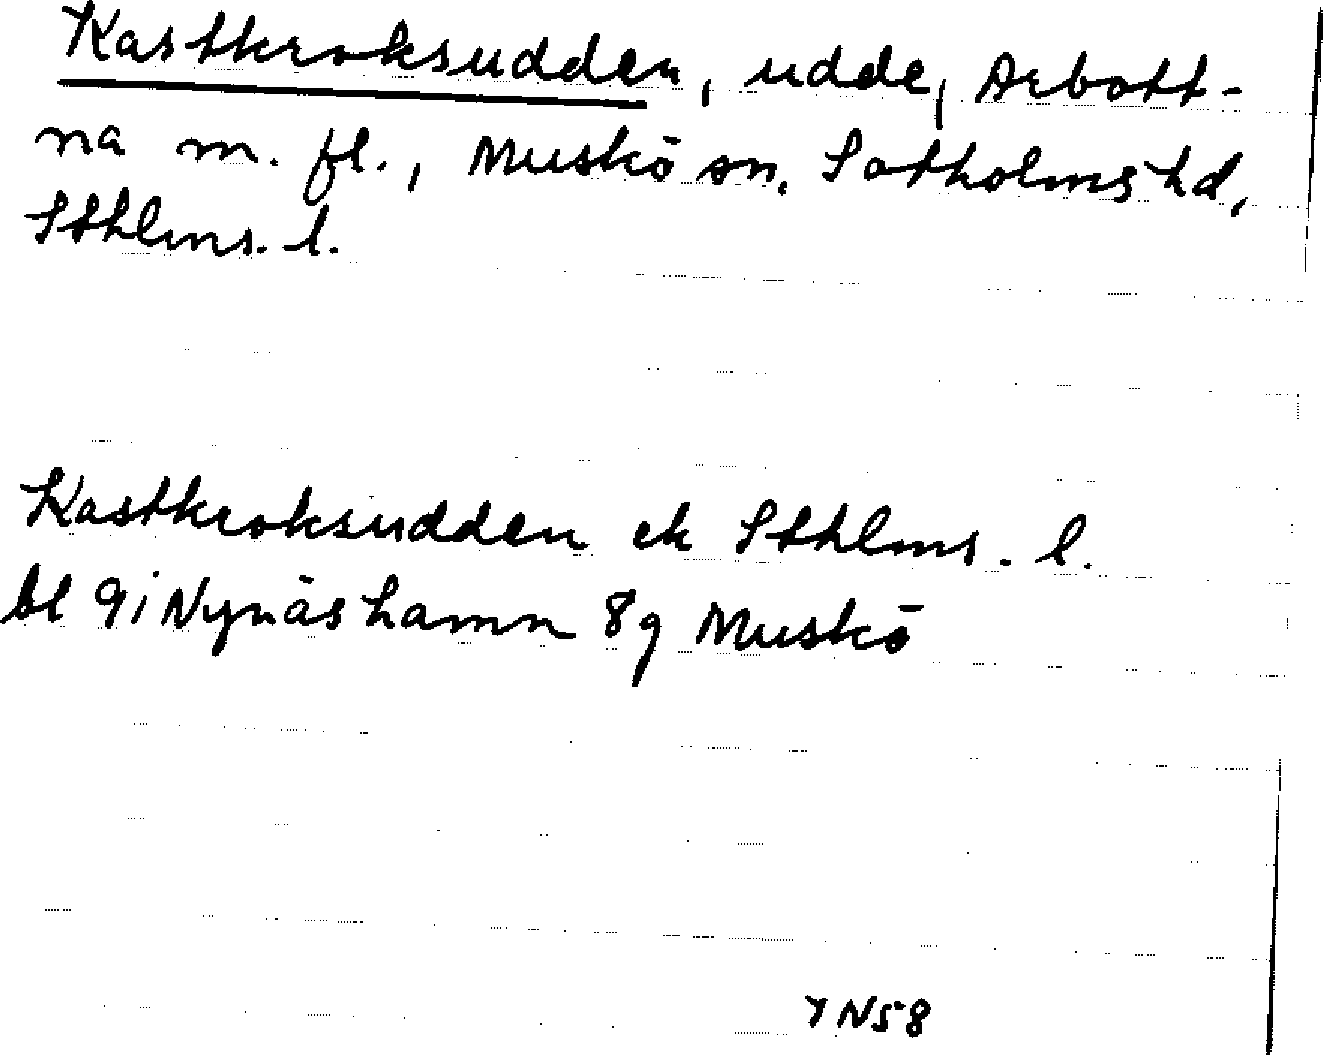 Kastkroksudden, udde, Arbott-
na m. fl., Muskö sn, Sotholms hd,
Sthlms. l.
Kastkroksudden ek Sthlms. l.
bl 9i Nynäshamn 8g Muskö
YN58